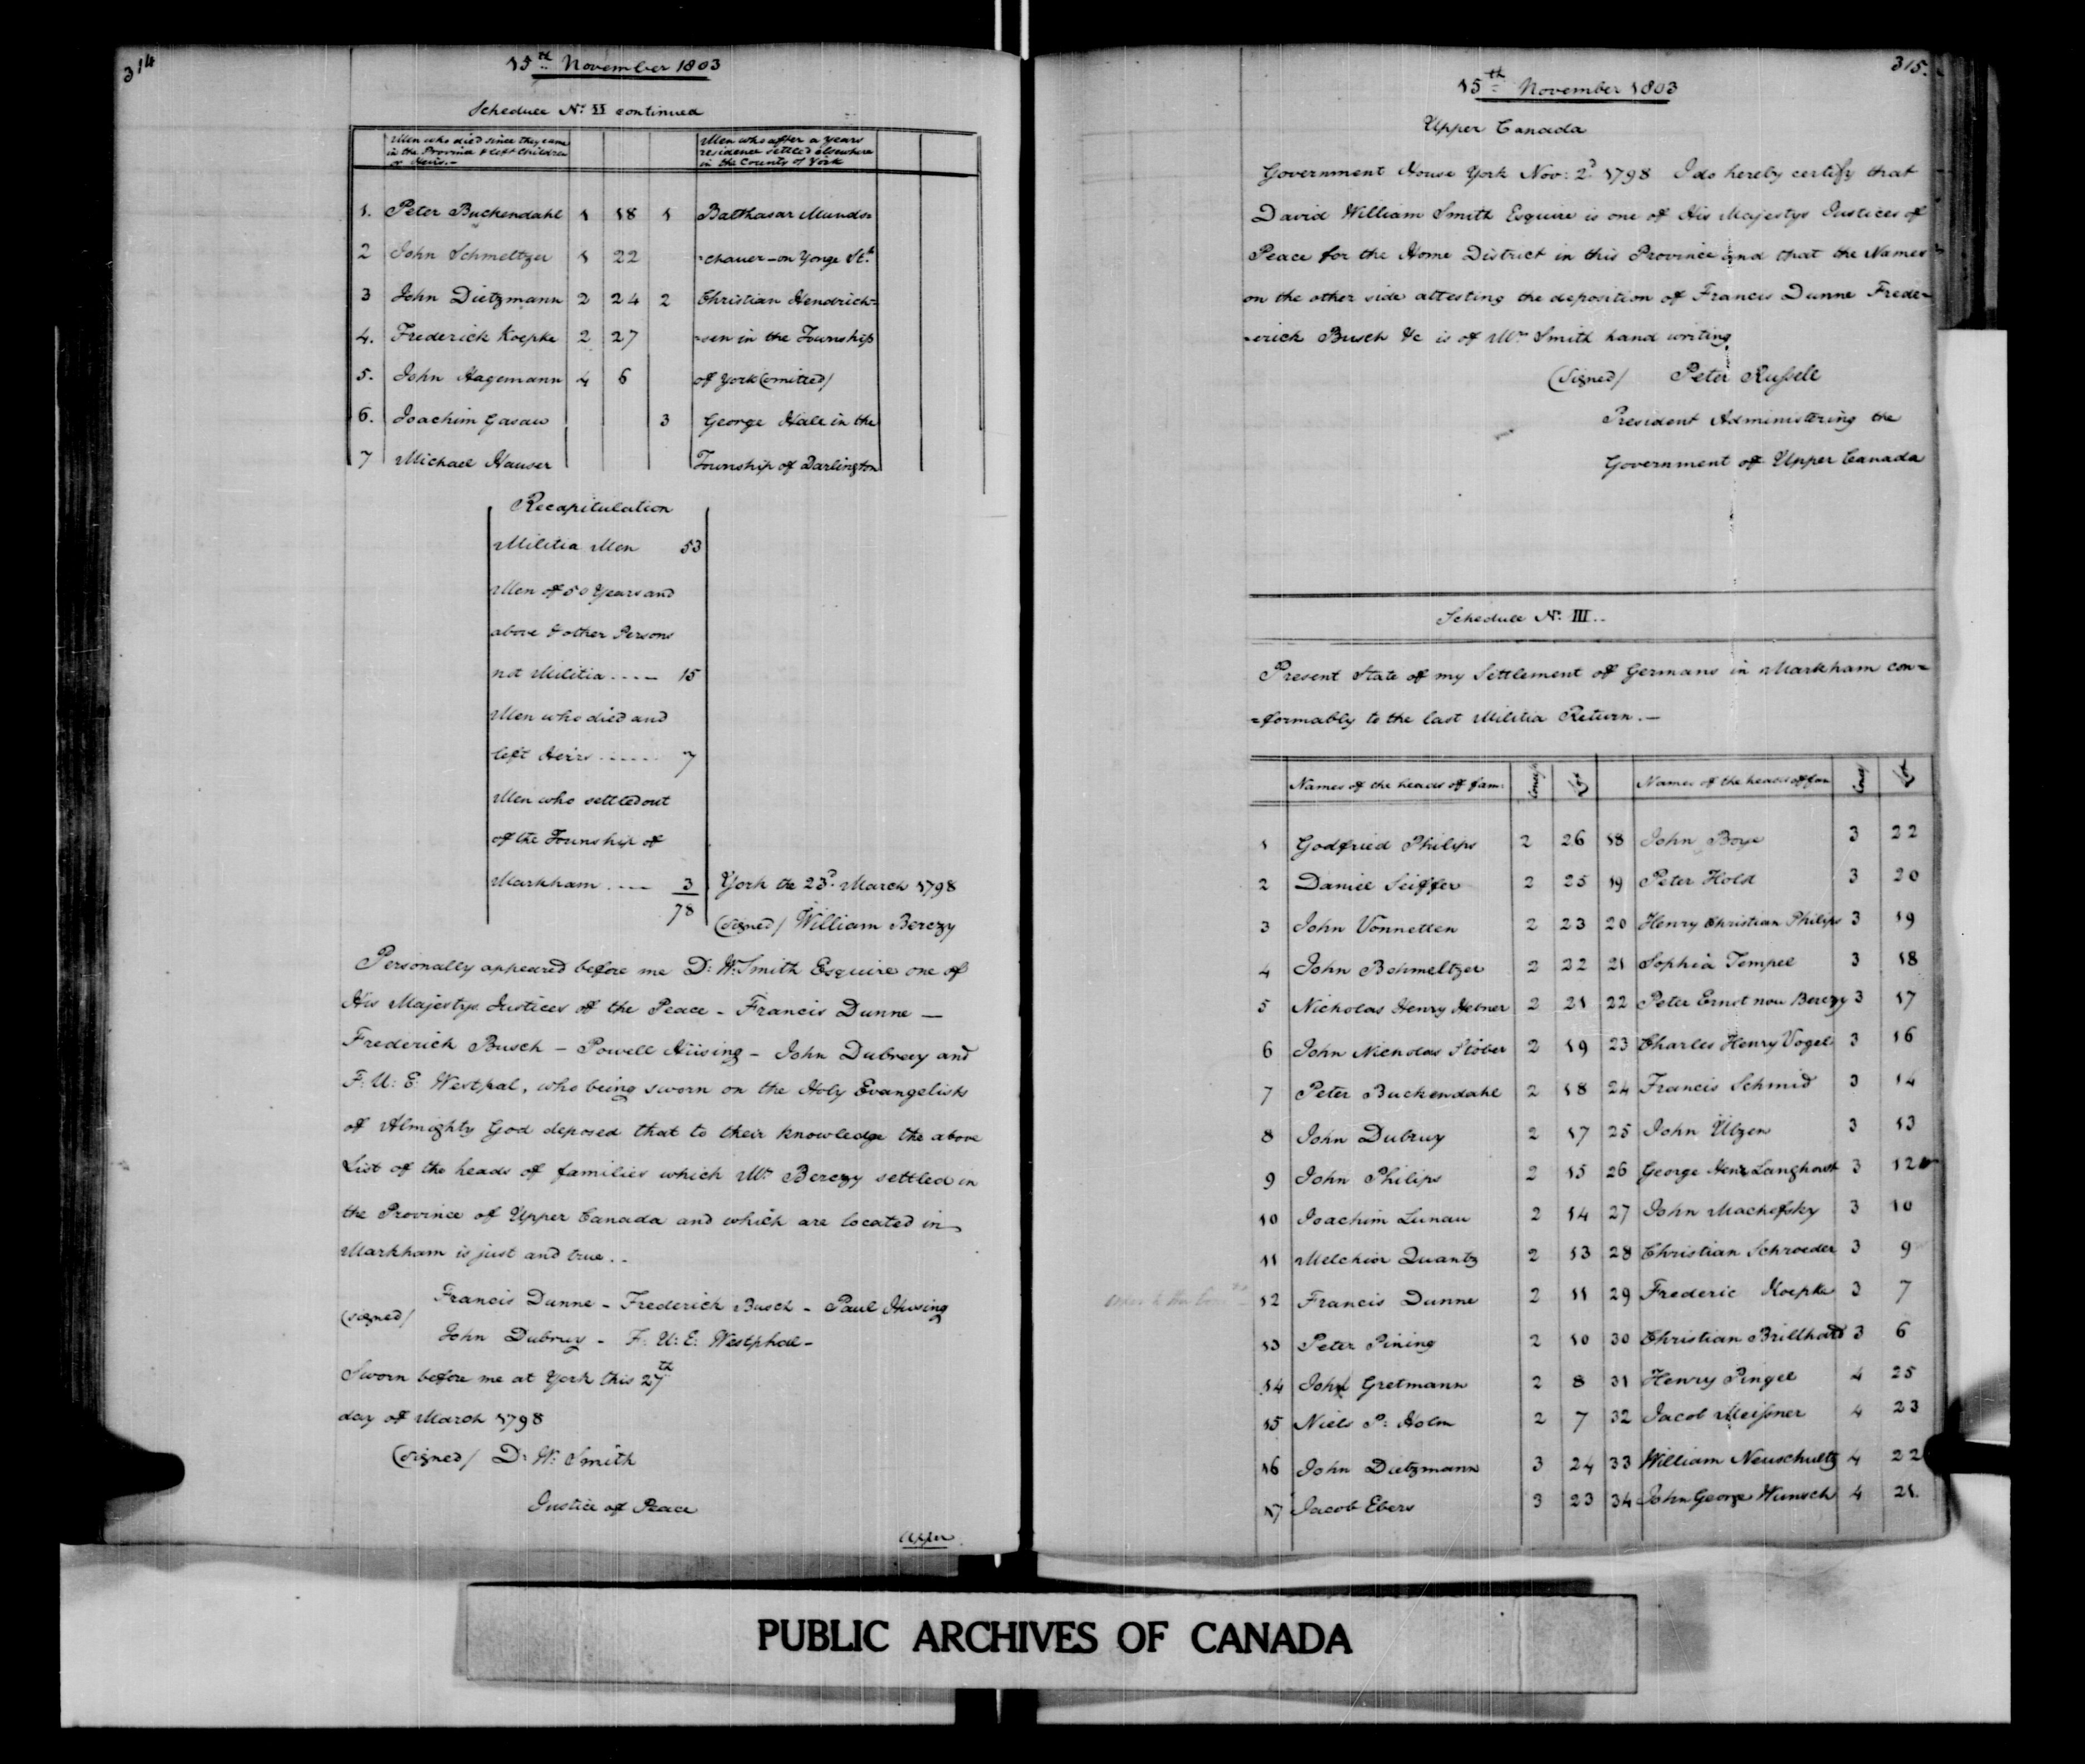 314
15th November 1803
Schedule No. II continued
Men who died since they came in the Province & left Children or Heirs.-
Men who after a years residence settled elsewhere in the County of York
1. Peter Buckendahl 1 18 1 Balthasar Munds=
2 John Schmeltzer 1 22 =chauer - on Yonge St.
3 John Dietzmann 2 24 2 Christian Hendrich=
4. Frederick Koepke 2 27 =sen in the Township
5. John Hagemann 4 6 of York (omitted)
6. Joachim Gasau 3 George Hale in the
7 Michael Hauser Township of Darlington
Recapitulation
Militia Men 53
Men of 50 Years and
above & other Persons
not Militia .... 15
Men who died and
left Heirs ..... 7
Men who settled out
of the Township of
Markham .... 3 York the 23d. March 1798
78 (signed/ William Berczy
Personally appeared before me D: W: Smith Esquire one of
His Majestys Justices of the Peace - Francis Dunne -
Frederick Busch - Powell Hüsing - John Dubrey and
F: U: E: Westpal, who being sworn on the Holy Evangelists
of Almighty God deposed that to their knowledge the above
List of the heads of families which Mr. Berczy settled in
the Province of Upper Canada and which are located in
Markham is just and true..
Francis Dunne - Frederick Busch - Paul Husing
(signed/
John Dubruy - F: U: E: Westphal -
Sworn before me at York this 27th
day of March 1798
(signed/ D: W: Smith
Justice of Peace
Upper
315.
15th November 1803
Upper Canada
Government House York Nov: 2d. 1798 I do hereby certify that
David William Smith Esquire is one of His Majestys Justices of
Peace for the Home District in this Province and that the Names
on the other side attesting the deposition of Francis Dunne Frede=
=erick Busch &c is of Mr. Smith hand writing
(Signed/ Peter Russell
President Administering the
Government of Upper Canada
Schedule No. III..
Present State of my Settlement of Germans in Markham con=
=formably to the last Militia Return.-
Names of the heads of fam: Conces Lot Names of the heads of fam Conces Lot
1 Godfried Philips 2 26 18 John Boye 3 22
2 Daniel Seiffer 2 25 19 Peter Hold 3 20
3 John Vonnetten 2 23 20 Henry Christian Philips 3 19
4 John Schmeltzer 2 22 21 Sophia Tempel 3 18
5 Nicholas Henry Hebner 2 21 22 Peter Ernst now Berczy 3 17
6 John Nicholas Stöber 2 19 23 Charles Henry Vogel 3 16
7 Peter Buckendahl 2 18 24 Francis Schmid 3 14
8 John Dubruy 2 17 25 John Ülzen 3 13
9 John Philips 2 15 26 George Henr Langhorst 3 12
10 Joachim Lunau 2 14 27 John Machofsky 3 10
11 Melchior Quantz 2 13 28 Christian Schroeder 3 9
12 Francis Dunne 2 11 29 Frederic Koepke 3 7
13 Peter Pining 2 10 30 Christian Brillhard 3 6
14 John Gretmann 2 8 31 Henry Pingel 4 25
15 Niels P: Holm 2 7 32 Jacob Meissner 4 23
16 John Dietzmann 3 24 33 William Neuschultz 4 22
17 Jacob Ebers 3 23 34 John George Wunsch 4 21.
PUBLIC ARCHIVES OF CANADA